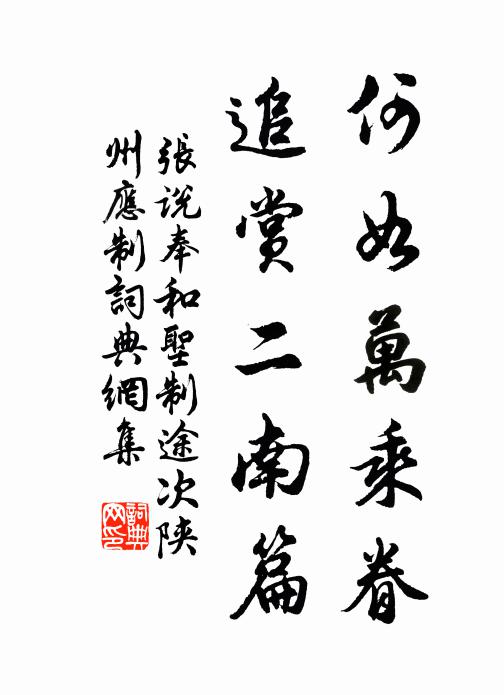 何如萬乘眷
追賞二南篇
張說奉和聖制途次陝
州應制詞典網集
詞典网印